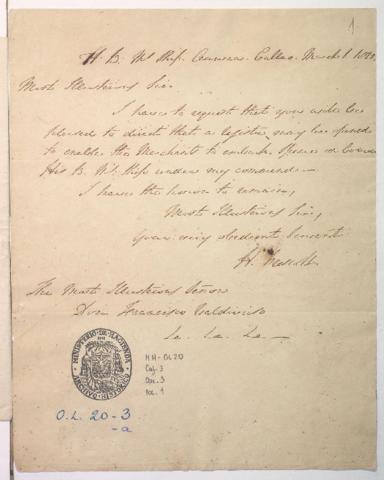 1
H. B. Ms Ship. Callao. March 1.
Most Illustrious Sir.
I have to request that you will be
pleased to direct that a register may be opened
to enable the Merchants to embark Specie on board
His B. Ms Ship under my command.
I have the honor to remain,
Most Illustrious Sir,
Your very obedient Servant
H.
The Most Illustrious Señor
Don Francisco Valdivieso
&c. &c. &c.
MINISTERIO DE HACIENDA
ARCHIVO HISTORICO
MH-OL20
Caj. 3
Doc. 3
Fol. 1
O.L. 20-3
-a